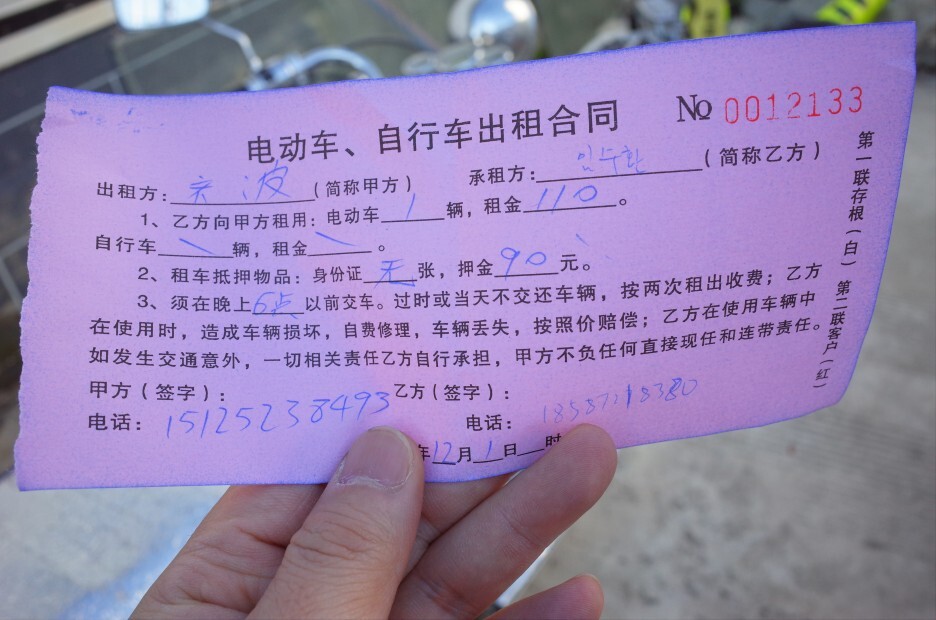 电动车、自行车出租合同 No 0012133
出租方： 波 （简称甲方） 承租方： （简称乙方）
1、乙方向甲方租用：电动车 1 辆，租金 110 。
自行车 \ 辆，租金 \ 。
2、租车抵押物品：身份证 无 张，押金 90 元。
3、须在晚上 6点 以前交车。过时或当天不交还车辆，按两次租出收费；乙方
在使用时，造成车辆损坏，自费修理，车辆丢失，按照价赔偿；乙方在使用车辆中
如发生交通意外，一切相关责任乙方自行承担，甲方不负任何直接现任和连带责任。
甲方（签字）： 乙方（签字）：
电话： 15125238493 电话：
年 12 月 1 日 时
第一联存根（白） 第二联客户（红）